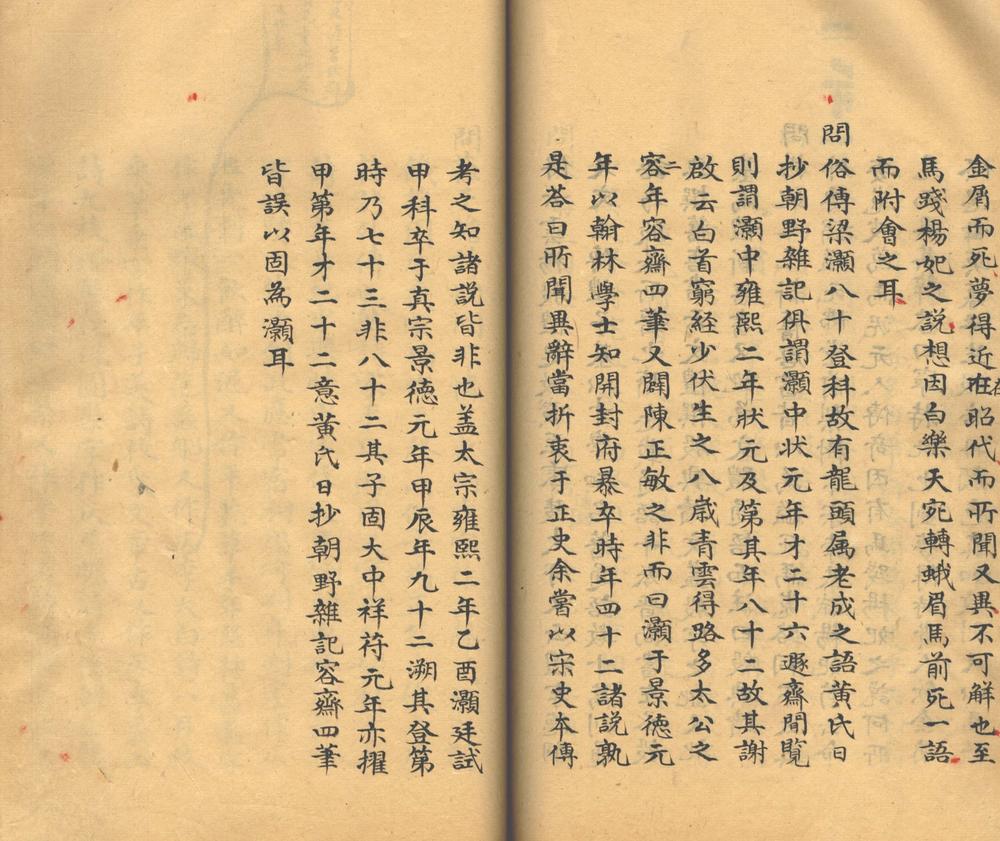 金屑而死夢得近在昭代而所聞又異不可解也至
馬踐楊妃之說想因白樂天宛轉蛾眉馬前死一語
而附會之耳
問俗傳梁灝八十登科故有龍頭屬老成之語黃氏日
抄朝野雜記俱謂灝中狀元年才二十六遯齋閒覧
則謂灝中雍熙二年狀元及第其年八十二故其謝
啟云白首窮経少伏生之八歲青雲得路多太公之
二
容年容齋四筆又闢陳正敏之非而曰灝于景德元
年以翰林學士知開封府暴卒時年四十二諸説孰
是荅曰所聞異辭當折衷于正史余嘗以宋史本傳
考之知諸説皆非也盖太宗雍熙二年乙酉灝廷試
甲科卒于真宗景德元年甲辰年九十二溯其登第
時乃七十三非八十二其子固大中祥符元年亦擢
甲第年才二十二意黃氏日抄朝野雜記容齋四筆
皆誤以固為灝耳